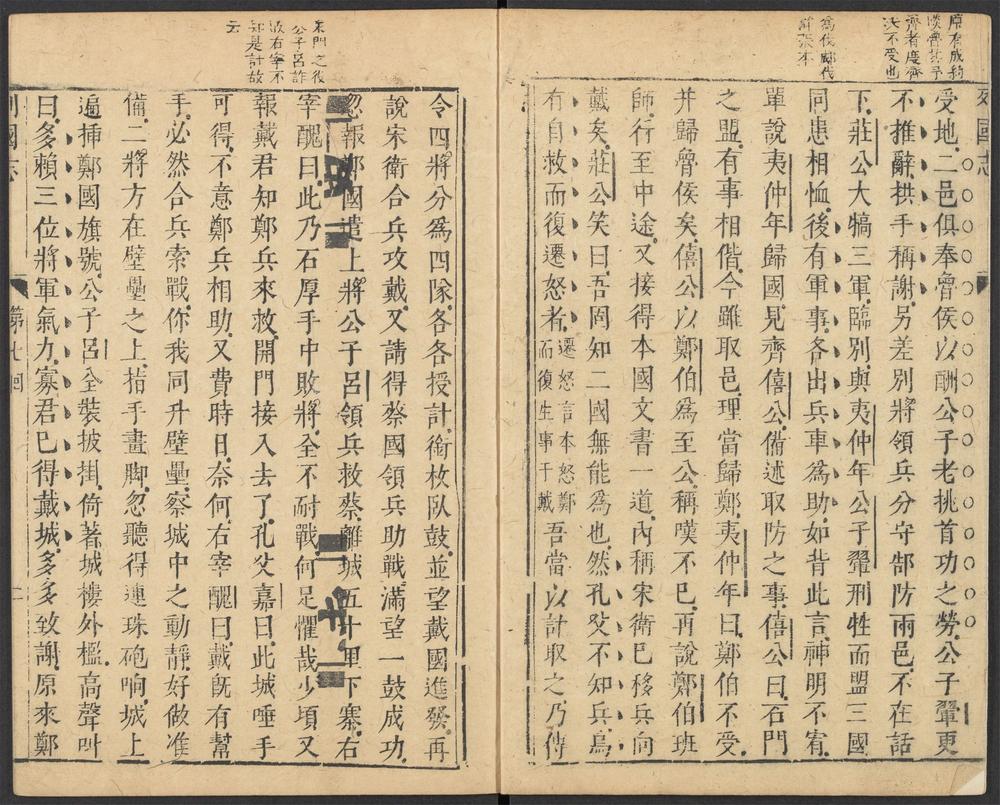 原有成約
齊者慶齊
決不受也
為伐郕伐
許張本
列國志
受地二邑俱奉魯侯以酬公子老挑首功之勞公子翬更
不推辭拱手稱謝另差別將領兵分守郜防兩邑不在話
下莊公大犒三軍臨別與夷仲年公子翬刑牲而盟三國
同患相恤後有軍事各出兵車為助如背此言神明不宥
單說夷仲年歸國見齊僖公備述取防之事僖公曰石門
之盟有事相偕今雖取邑理當歸鄭夷仲年曰鄭伯不受
并歸魯侯矣僖公以鄭伯為至公稱嘆不已再說鄭伯班
師行至中途又接得本國文書一道內稱宋衛已移兵向
戴矣莊公笑曰吾固知二國無能為也然孔父不知兵烏
有自救而復遷怒者遷怒言本怒鄭而復生事于戴吾當以計取之乃傳
來門之役
公子呂詐
敗右宰不
知是計故
云
令四將分為四隊各各授計銜枚臥鼓並望戴國進發再
說宋衛合兵攻戴又請得蔡國領兵助戰滿望一鼓成功
忽報鄭國遣上將公子呂領兵救蔡離城五十里下寨右
宰醜曰此乃石厚手中敗將全不耐戰何足懼哉少頃又
報戴君知鄭兵來救開門接入去了孔父嘉曰此城唾手
可得不意鄭兵相助又費時日奈何右宰醜曰戴既有幫
手必然合兵索戰你我同升壁壘察城中之動靜好做准
備二將方在壁壘之上指手畫腳忽聽得連珠砲响城上
遍插鄭國旗號公子呂全裝披掛倚著城樓外檻高聲叫
曰多賴三位將軍氣力寡君已得戴城多多致謝原來鄭
列國志
第七回
二